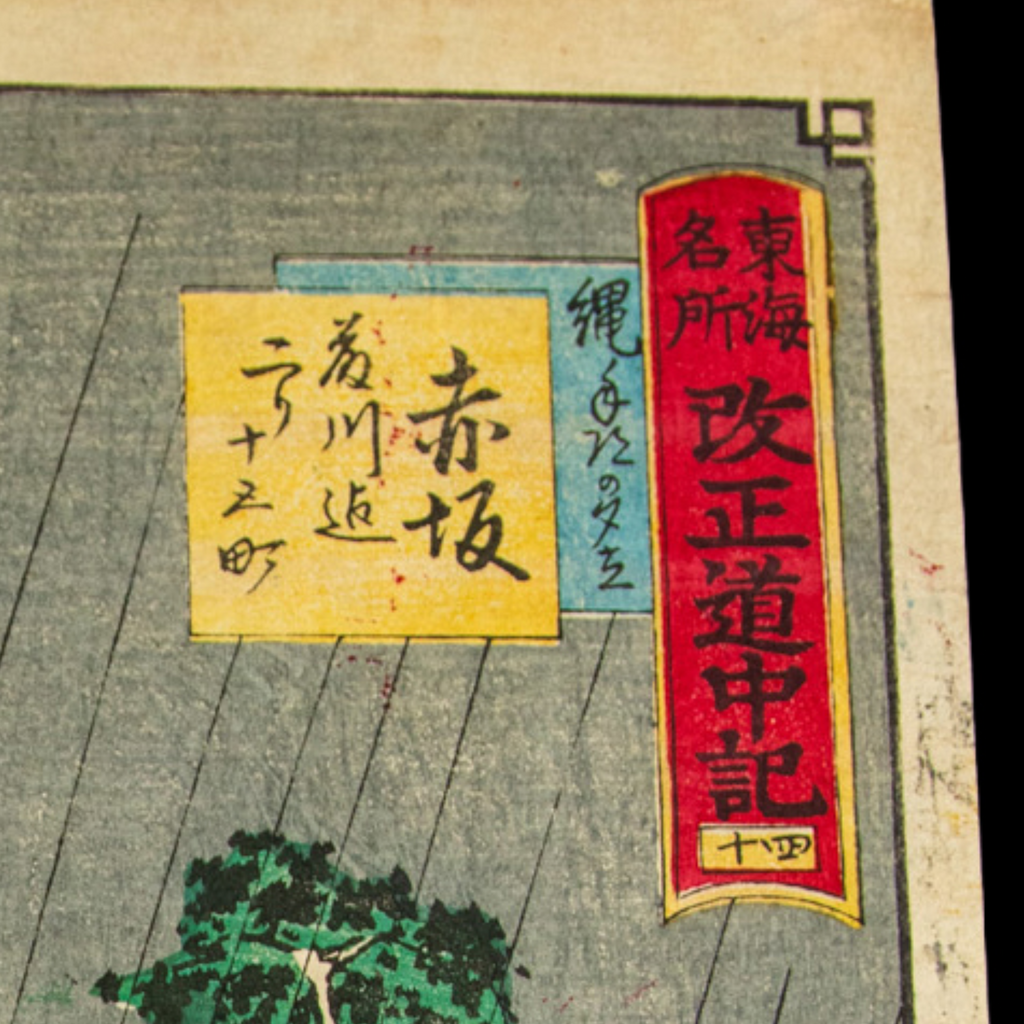 東海
名所
改正道中記
四十
縄手道の夕立
赤坂
藤川迠
二り十五町